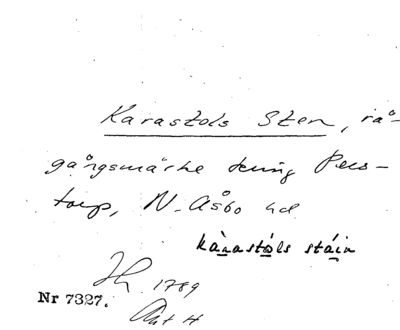 Karastols Sten, rå-
gångsmärke kring Pers-
torp, N. Åsbo hd
kàrastò̱ls stáin
1789
Nr 7327.
Akt H